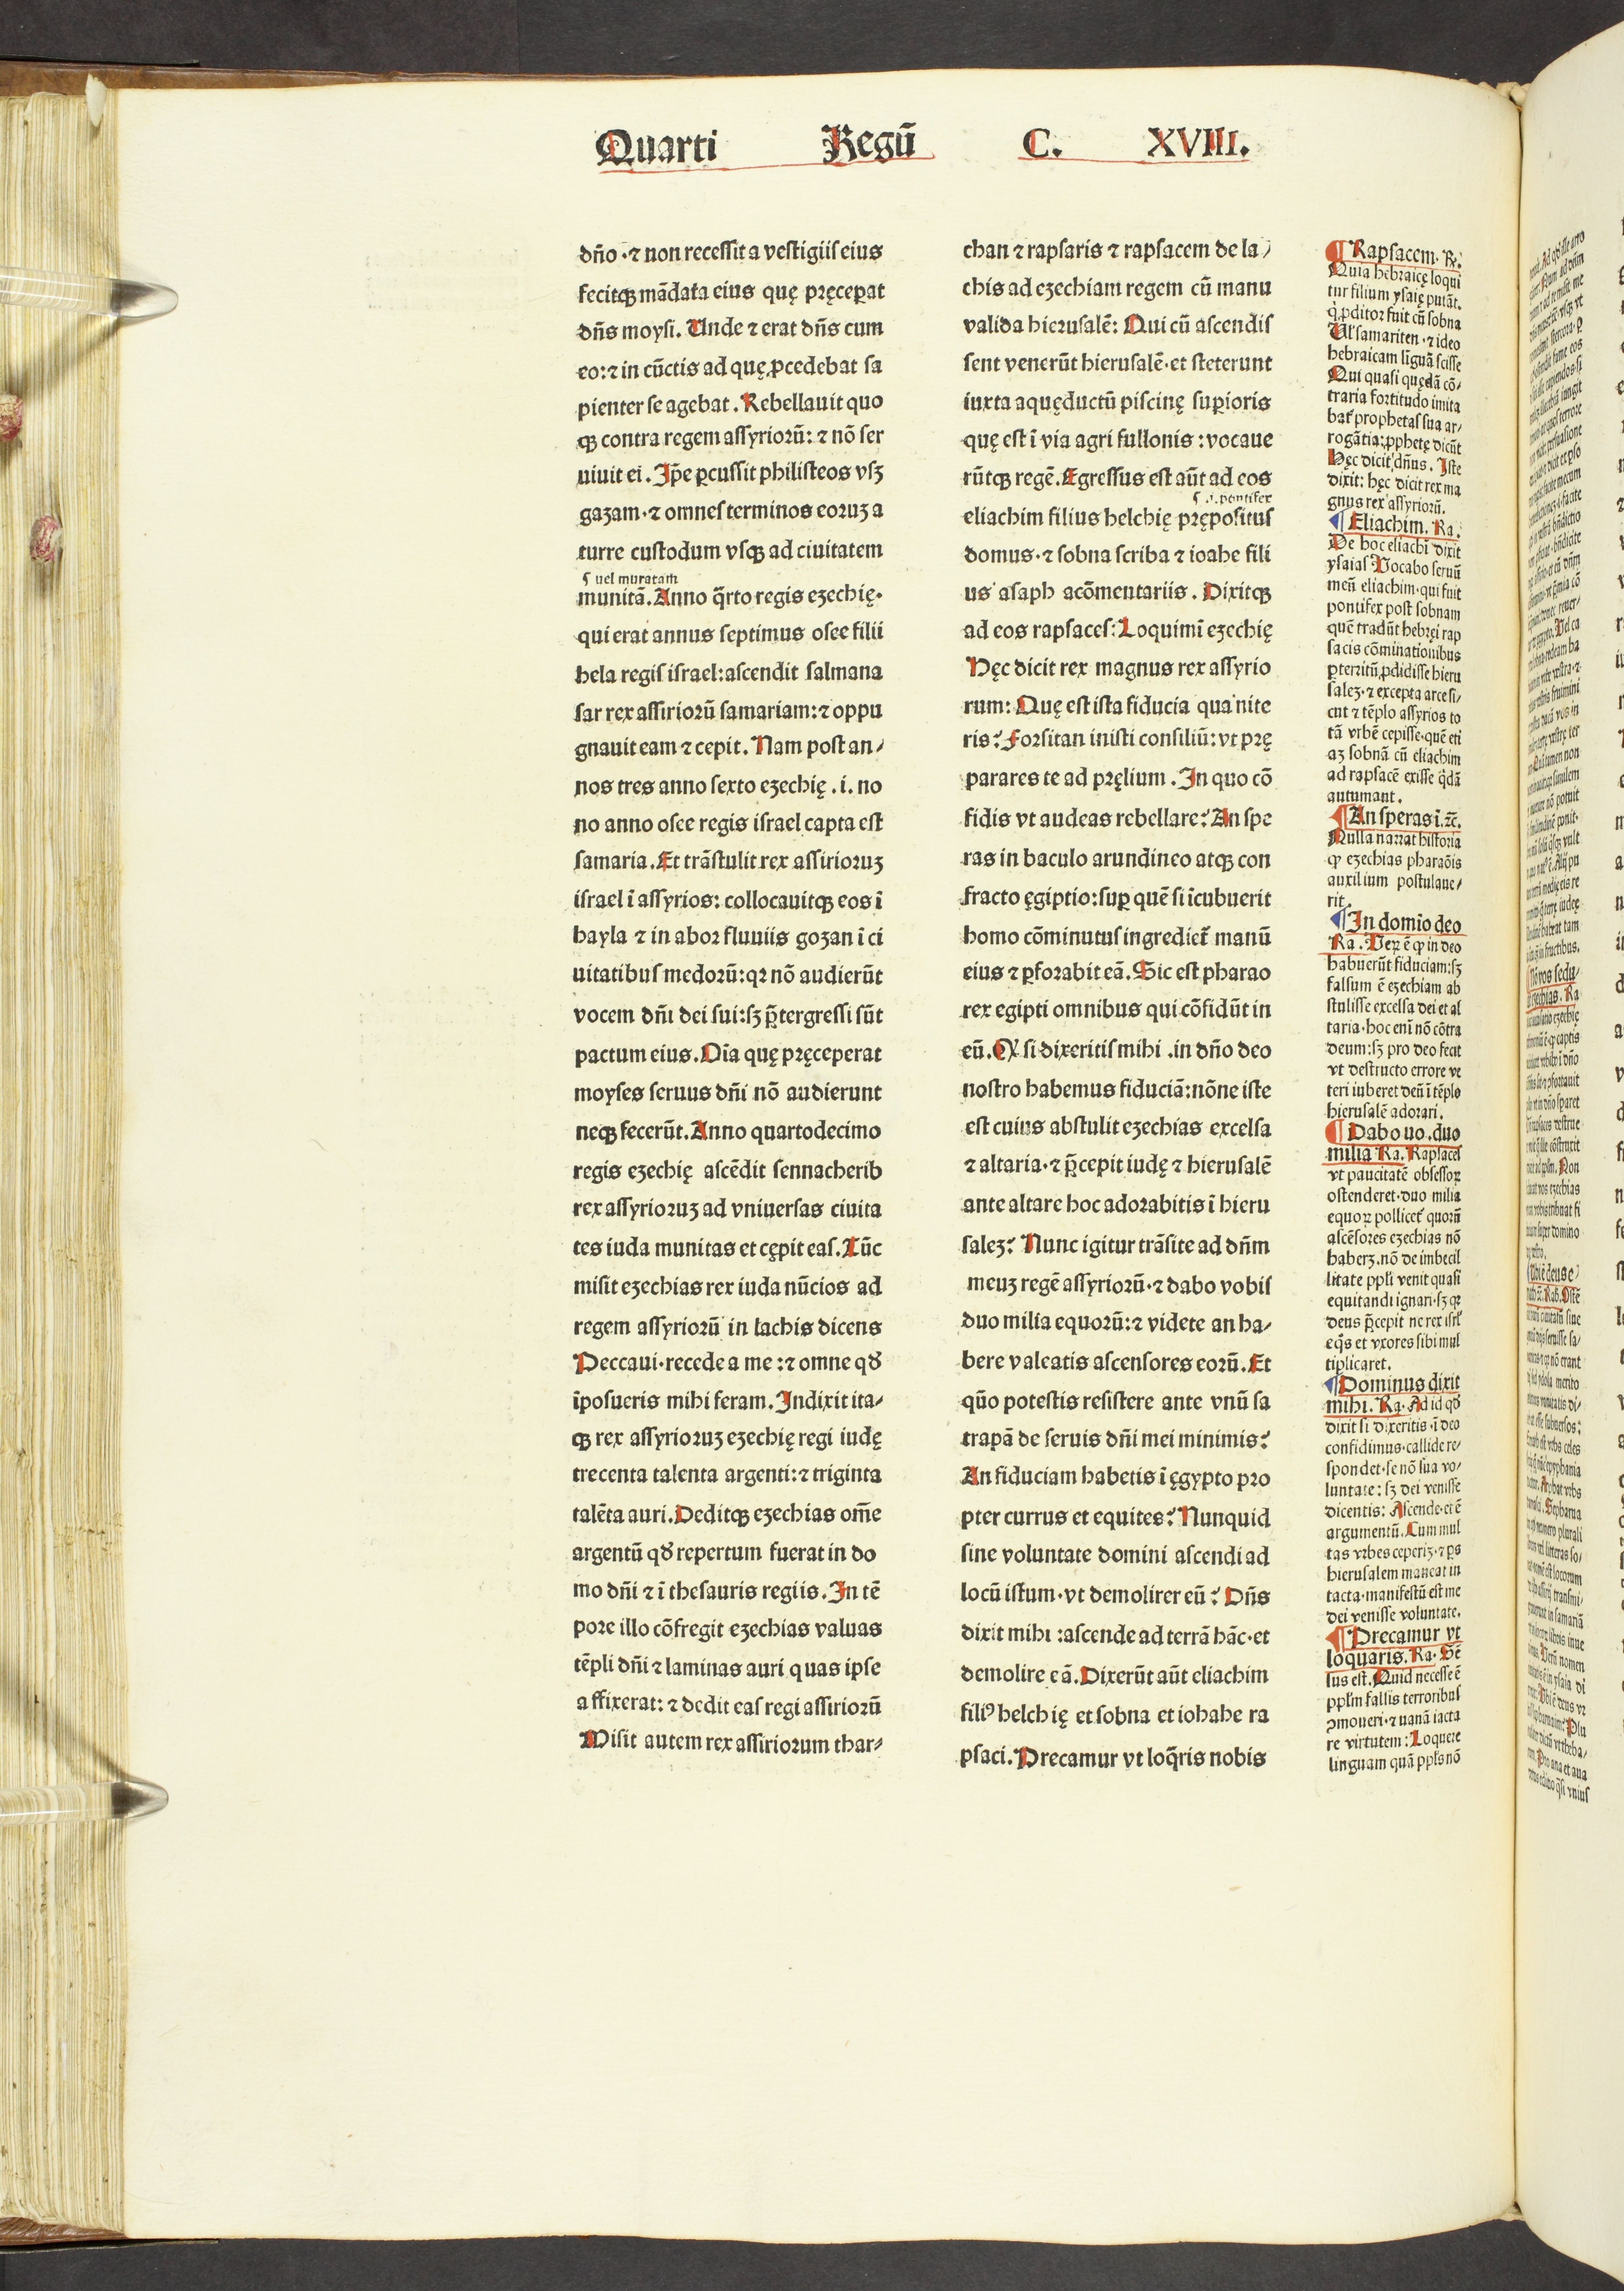 Quarti Regū C. XVIII.
dño · ⁊ non recessit a vestigiis eius
fecitqꝫ mādata eius quę pręceꝑat
dñs moysi. Unde ⁊ erat dñs cum
eo: ⁊ in cūctis ad quę ꝓcedebat sa
pienter se agebat. Rebellauit quo
qꝫ contra regem assyriorū: ⁊ nō ser
uiuit ei. Ip̄e ꝑcussit philisteos vsꝫ
gazam · ⁊ omnes terminos eoruꝫ a
turre custodum vsqꝫ ad ciuitatem
¶ uel muratam
munitā. Anno q̄rto regis ezechię·
qui erat annus septimus osee filii
hela regis israel: ascendit salmana
sar rex assiriorū samariam: ⁊ oppu
gnauit eam ⁊ cepit. Nam post an⸗
nos tres anno sexto ezechię .i. no
no anno osee regis israel capta est
samaria. Et trāstulit rex assirioruꝫ
israel ī assyrios: collocauitqꝫ eos ī
hayla ⁊ in abor fluuiis gozan ī ci
uitatibus medorū: qꝛ nō audierūt
vocem dñi dei sui: sꝫ p̄tergressi sūt
pactum eius. Oīa quę pręceperat
moyses seruus dñi nō audierunt
neqꝫ fecerūt. Anno quartodecimo
regis ezechię ascēdit sennacherib
rex assyrioruꝫ ad vniuersas ciuita
tes iuda munitas et cępit eas. Tūc
misit ezechias rex iuda nūcios ad
regem assyriorū in lachis dicens
Peccaui · recede a me: ⁊ omne qđ
īposueris mihi feram. Indixit ita⸗
qꝫ rex assyrioruꝫ ezechię regi iudę
trecenta talenta argenti: ⁊ triginta
talēta auri. Deditqꝫ ezechias om̄e
argentū qđ repertum fuerat in do
mo dñi ⁊ ī thesauris regiis. In tē
pore illo cōfregit ezechias valuas
tēpli dñi ⁊ laminas auri quas ipse
affixerat: ⁊ dedit eas regi assiriorū
Misit autem rex assiriorum thar⸗
chan ⁊ rapsaris ⁊ rapsacem de la⸗
chis ad ezechiam regem cū manu
valida hierusalē: Qui cū ascendis
sent venerūt hierusalē · et steterunt
iuxta aquęductū piscinę suꝑioris
quę est ī via agri fullonis: vocaue
rūtqꝫ regē. Egressus est aūt ad eos
¶ .i. pontifex
eliachim filius helchię prępositus
domus · ⁊ sobna scriba ⁊ ioahe fili
us asaph acōmentariis. Dixitqꝫ
ad eos rapsaces: Loquimī ezechię
Hęc dicit rex magnus rex assyrio
rum: Quę est ista fiducia qua nite
ris? Forsitan inisti consiliū: vt prę
parares te ad pręlium. In quo cō
fidis vt audeas rebellare? An spe
ras in baculo arundineo atqꝫ con
fracto ęgiptio: suꝑ quē si īcubuerit
homo cōminutus ingrediet̄ manū
eius ⁊ ꝑforabit eā. Sic est pharao
rex egipti omnibus qui cōfidūt in
eū. Qꝙ si dixeritis mihi .in dño deo
nostro habemus fiduciā: nōne iste
est cuius abstulit ezechias excelsa
⁊ altaria · ⁊ p̄cepit iudę ⁊ hierusalē
ante altare hoc adorabitis ī hieru
saleꝫ? Nunc igitur trāsite ad dñm
meuꝫ regē assyriorū · ⁊ dabo vobis
duo milia equorū: ⁊ videte an ha⸗
bere valeatis ascensores eorū. Et
qūo potestis resistere ante vnū sa
trapā de seruis dñi mei minimis?
An fiduciam habetis ī ęgypto pro
pter currus et equites? Nunquid
sine voluntate domini ascendi ad
locū istum · vt demolirer eū? Dñs
dixit mihi: ascende ad terrā hāc · et
demolire eā. Dixerūt aūt eliachim
filiꝰ helchię et sobna et iohahe ra
psaci. Precamur vt loq̄ris nobis
¶ Rapsacem. R.
Quia hebraicę loqui
tur filium ysaię putāt.
q̇ ꝓditor fuit cū sobna
Ul samariten · ⁊ ideo
hebraicam liguā scisse
Qui quasi quędā cō⸗
traria fortitudo imita
bat̄ prophetas sua ar⸗
rogātia: ꝓphetę dicūt
Hęc dicit dñus. Iste
dixit: hęc dicit rex ma
gnus rex assyriorū.
¶ Eliachim. Ra.
De hoc eliachī dixit
ysaias Vocabo seruū
meū eliachim · qui fuit
pontifex post sobnam
quē tradūt hebręi rap
sacis cōminationibus
ꝑterritū ꝓdidisse hieru
saleꝫ · ⁊ excepta arce si⸗
cut ⁊ tēplo assyrios to
tā vrbē cepisse · quē eti
aꝫ sobnā cū eliachim
ad rapsacē exisse q̇dā
autumant.
¶ An speras ī. ⁊c.
Nulla narrat historia
ꝙ ezechias pharaōis
auxilium postulaue⸗
rit.
¶ In domio deo
Ra. Veꝝ ē ꝙ in deo
habuerūt fiduciam: sꝫ
falsum ē ezechiam ab
stulisse excelsa dei et al
taria · hoc enī nō cōtra
deum: sꝫ pro deo fecit
vt destructo errore ve
teri iuberet deū ī tēplo
hierusalē adorari.
¶ Dabo uo. duo
milia Ra. Rapsaces
vt paucitatē obsessoꝝ
ostenderet · duo milia
equoꝝ pollicet̄ quorū
ascēsores ezechias nō
haberꝫ. nō de imbecil
litate ppl̄i venit quasi
equitandi ignari · sꝫ qꝛ
deus p̄cepit ne rex isrl̄
eq̇s et vxores sibi mul
tiplicaret.
¶ Dominus dixit
mihi. Ra. Ad id qđ
dixit si dixeritis · ī deo
confidimus · callide re⸗
spondet · se nō sua vo⸗
luntate: sꝫ dei venisse
dicentis: Ascende · et ē
argumentū. Cum mul
tas vrbes ceperiꝫ · ⁊ ꝑs
hierusalem maneat in
tacta · manifestū est me
dei venisse voluntate.
¶ Precamur vt
loquaris. Ra. Sē
sus est. Quid necesse ē
ppl̄m fallis terroribus
ꝯmoueri · ⁊ uanā iacta
re virtutem: Loquere
linguam quā ppl̄s nō